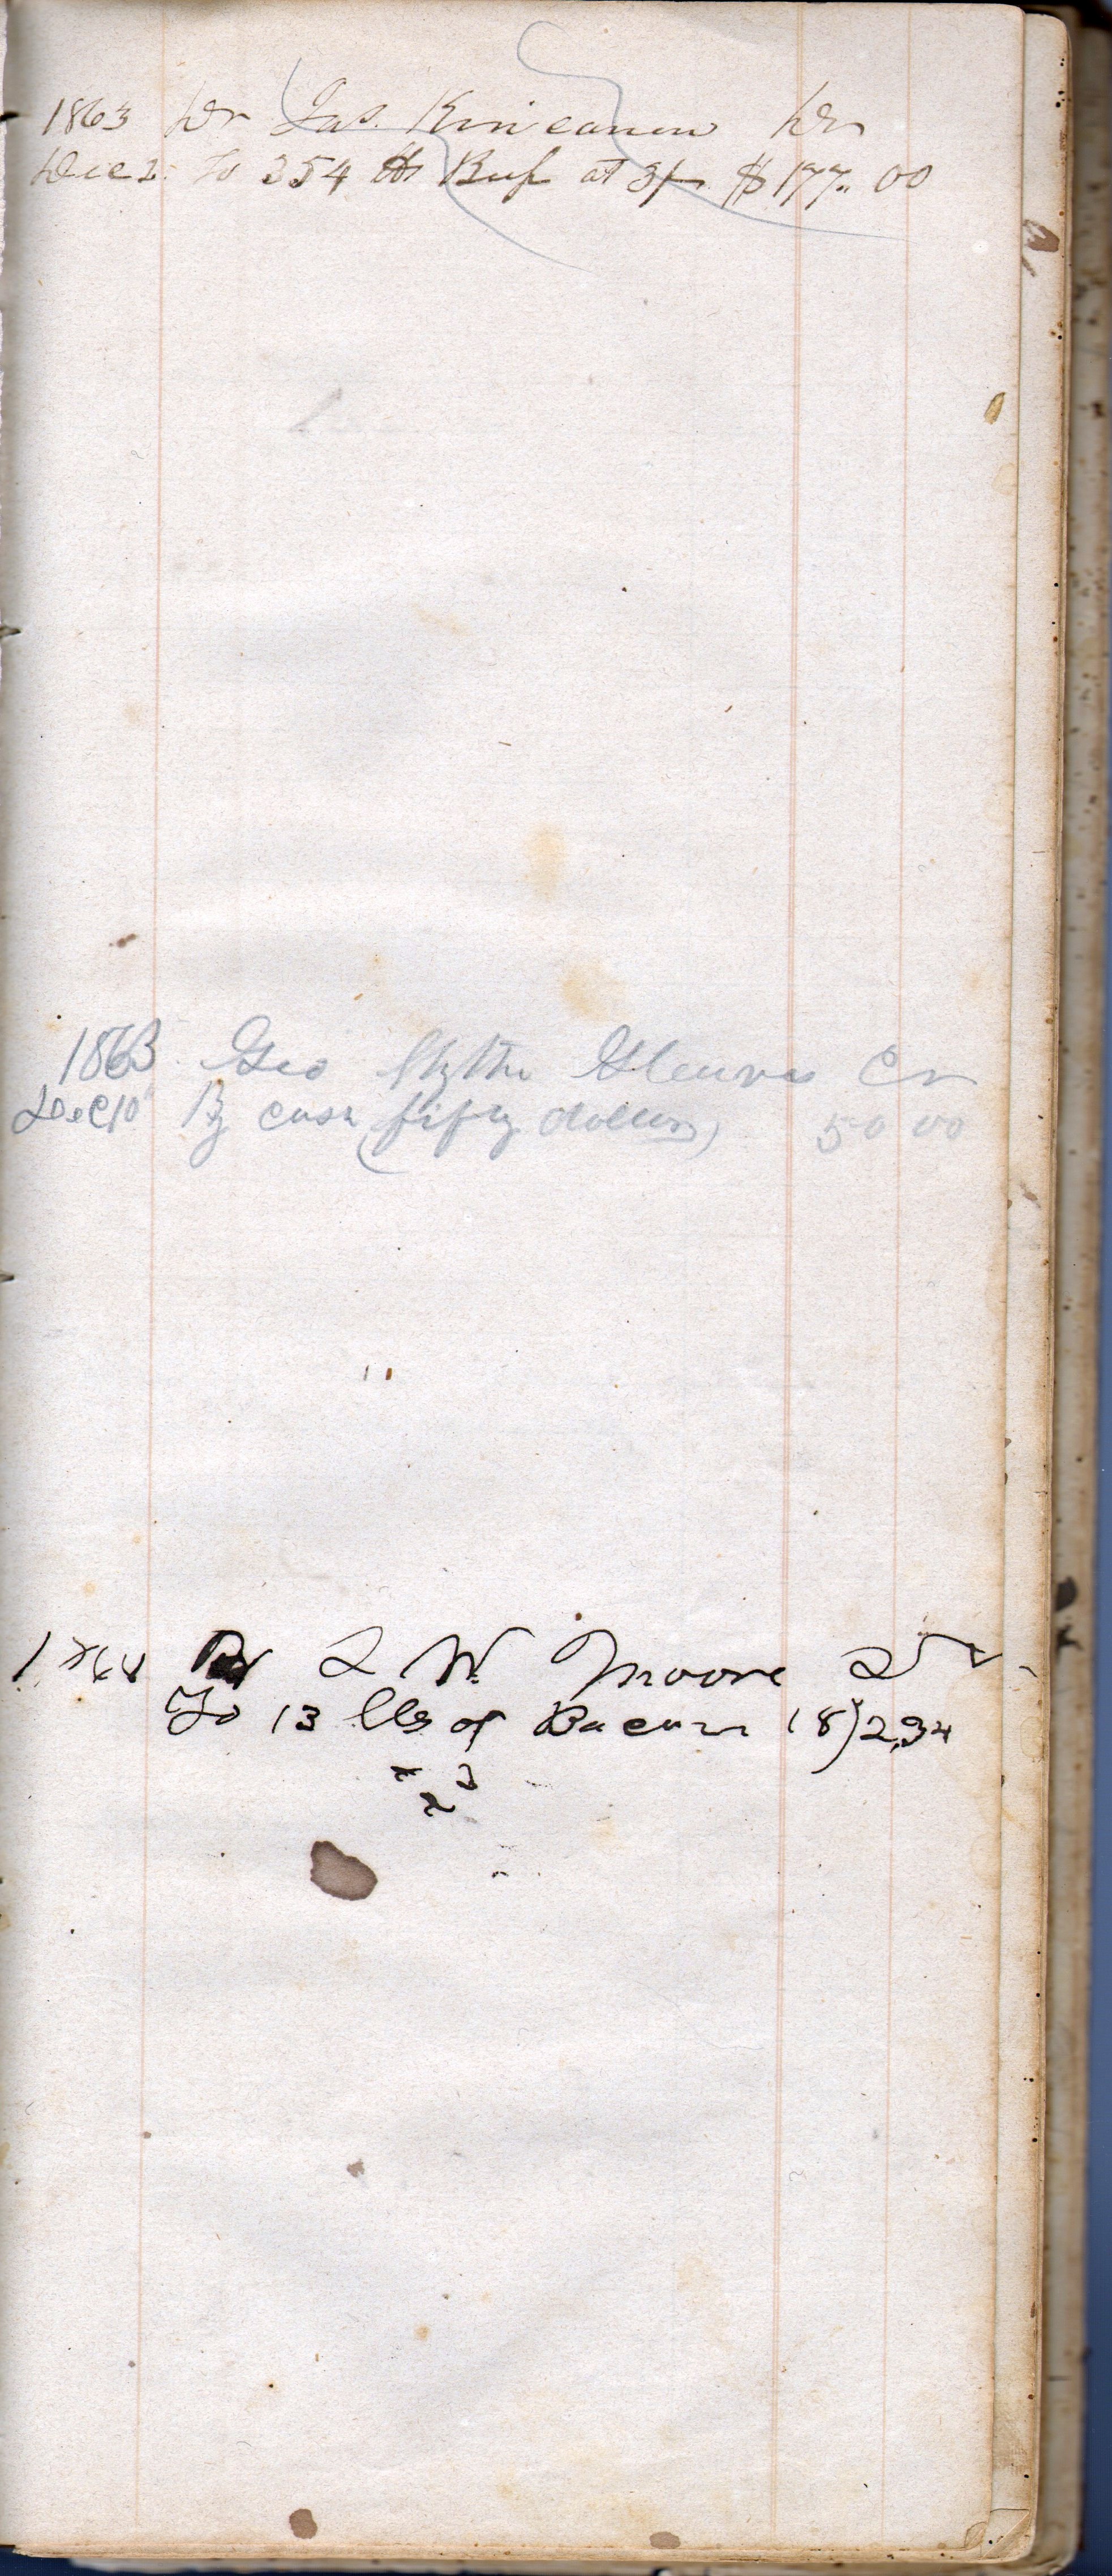 1863 Dr Jas. Kincannon Dr
Dec 2 To 354 lbs Beef at 3/- $177.00
1863 Geo Gleaves Cr
Dec 10 By cash (fifty dollars) 50 00
Dr W. Moore Dr
To 13 lbs of Bacon (18) 2,34